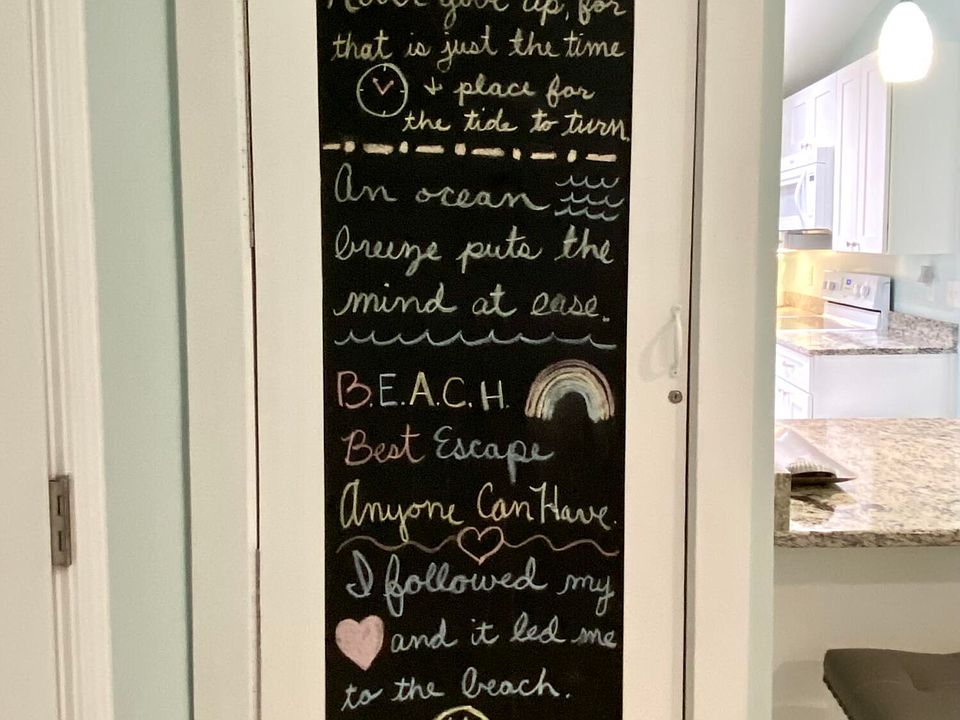 Never give up, for
that is just the time
+ place for
the tide to turn.
An ocean
breeze puts the
mind at ease.
B.E.A.C.H.
Best Escape
Anyone Can Have.
I followed my
and it led me
to the beach.